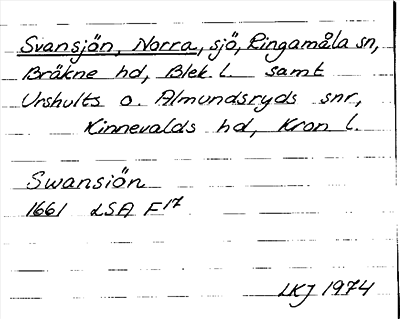 Svansjön, Norra, sjö, Ringamåla sn,
Bräkne hd, Blek. l. samt
Urshults o. Almundsryds snr,
Kinnevalds hd, Kron l.
Swansiön
1661 LSA F17
LKJ 1974